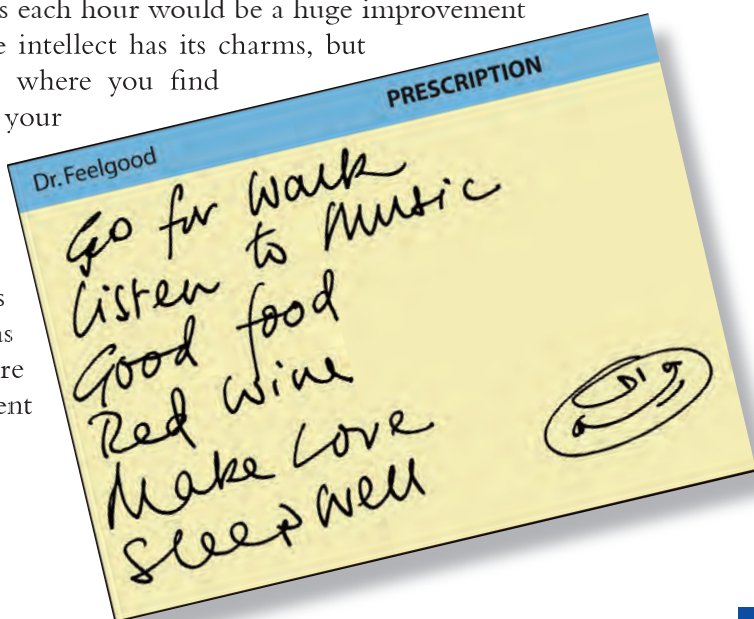 s each hour would be a huge improvement
e intellect has its charms, but
where you find
your
PRESCRIPTION
Dr. Feelgood
Go for walk
Listen to music
Good food
Red wine
Make Love
Sleep well
s
as
re
ent